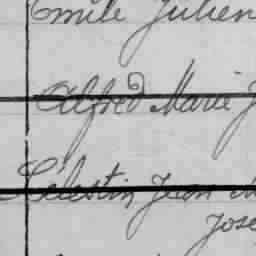 Emile Julien
Alfred Marie J
Célestin Jean
Jose